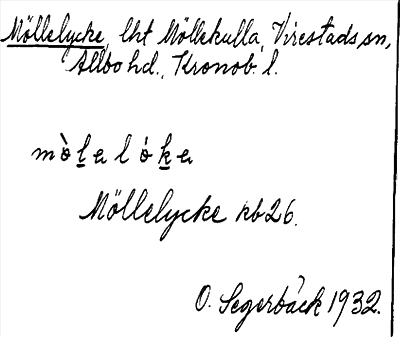 Möllelycke, lht Möllekulla, Virestads sn,
Allbo hd., Kronob. l.
Möllelycke kb 26.
O. Segerbäck 1932.